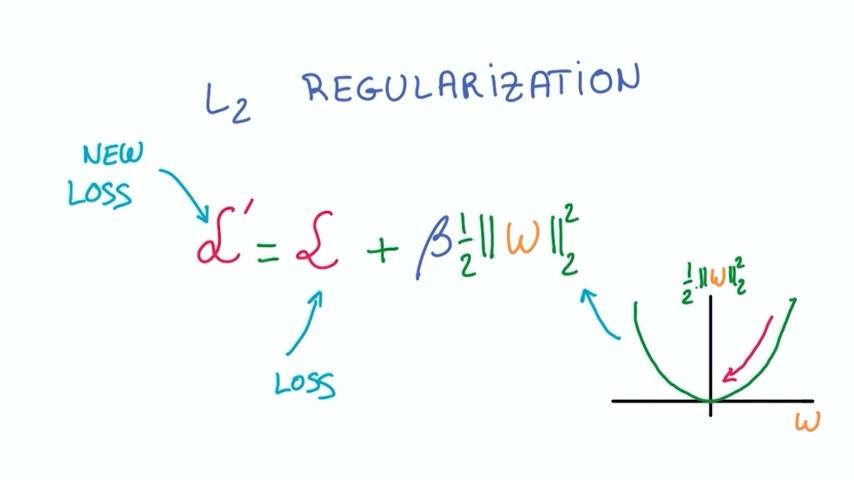 L₂ REGULARIZATION
NEW
LOSS
ℒ' = ℒ + β ½ ||W||₂²
LOSS
½ . ||W||₂²
W